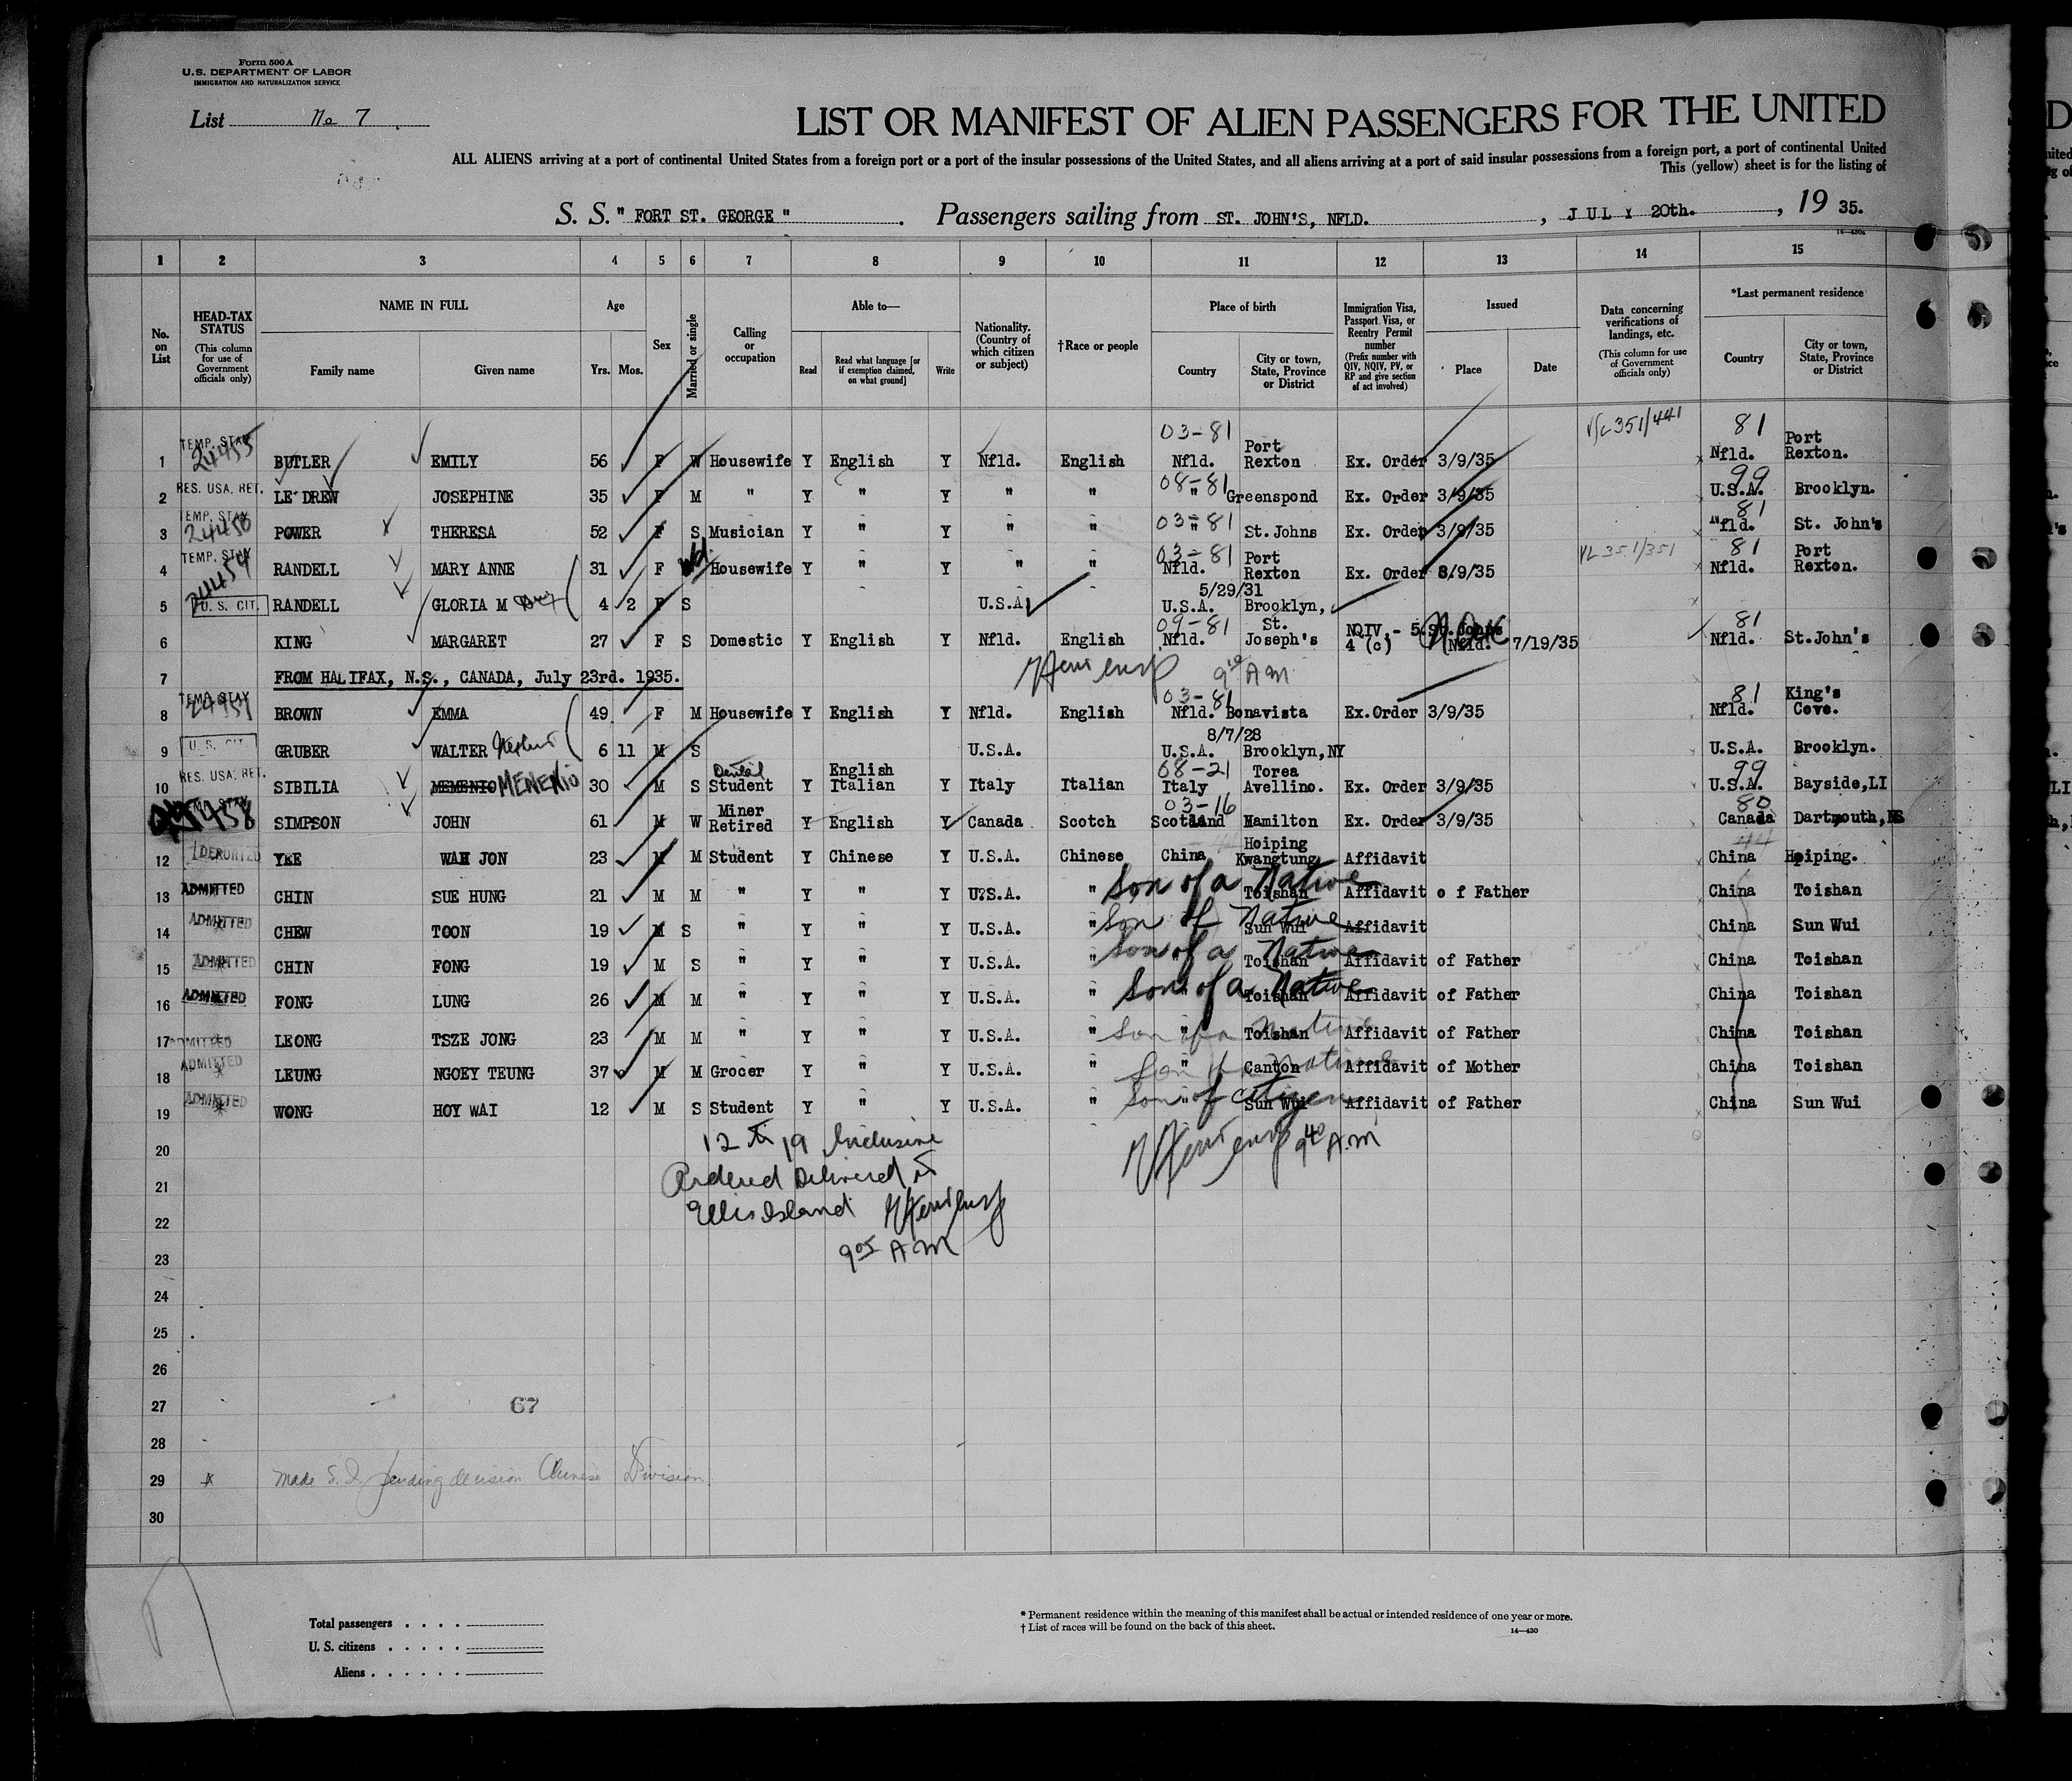 Form 500 A
U.S. DEPARTMENT OF LABOR
IMMIGRATION AND NATURALIZATION SERVICE
List No 7
LIST OR MANIFEST OF ALIEN PASSENGERS FOR THE UNITED
ALL ALIENS arriving at a port of continental United States from a foreign port or a port of the insular possessions of the United States, and all aliens arriving at a port of said insular possessions from a foreign port, a port of continental United
This (yellow) sheet is for the listing of
S. S. " FORT ST. GEORGE " . Passengers sailing from ST. JOHN'S, NFLD. , JULY 20th. , 19 35.
14—430a
1 2 3 4 5 6 7 8 9 10 11 12 13 14 15
No. on List
HEAD-TAX STATUS (This column for use of Government officials only)
NAME IN FULL
Family name Given name
Age
Yrs. Mos.
Sex
Married or single
Calling or occupation
Able to—
Read Read what language [or if exemption claimed, on what ground] Write
Nationality. (Country of which citizen or subject)
†Race or people
Place of birth
Country City or town, State, Province or District
Immigration Visa, Passport Visa, or Reentry Permit number (Prefix number with QIV, NQIV, PV, or RP and give section of act involved)
Issued
Place Date
Data concerning verifications of landings, etc. (This column for use of Government officials only)
*Last permanent residence
Country City or town, State, Province or District
1 TEMP. STAY 24455 BUTLER EMILY 56 F W Housewife Y English Y Nfld. English 03-81 Nfld. Port Rexton Ex. Order 3/9/35 351/441 81 Nfld. Port Rexton.
2 RES. USA. RET. LE DREW JOSEPHINE 35 F M " Y " Y " " 08-81 " Greenspond Ex. Order 3/9/35 99 U.S.A. Brooklyn.
3 TEMP. STAY 24456 POWER THERESA 52 F S Musician Y " Y " " 03-81 " St.Johns Ex. Order 3/9/35 81 Nfld. St. John's
4 TEMP. STAY RANDELL MARY ANNE 31 F Wd. Housewife Y " Y " " 03-81 Nfld. Port Rexton Ex. Order 3/9/35 VL 351/351 81 Nfld. Port Rexton.
5 U. S. CIT. RANDELL GLORIA M 4 2 F S U.S.A. 5/29/31 U.S.A. Brooklyn,
6 KING MARGARET 27 F S Domestic Y English Y Nfld. English 09-81 Nfld. St. Joseph's NQIV.- 5. 4 (c) St. Johns Nfld. 7/19/35 81 Nfld. St.John's
7 FROM HALIFAX, N.S., CANADA, July 23rd. 1935. 9 10 AM
8 TEMP. STAY 24457 BROWN EMMA 49 F M Housewife Y English Y Nfld. English 03-81 Nfld. Bonavista Ex.Order 3/9/35 81 Nfld. King's Cove.
9 U. S. CIT. GRUBER WALTER Nephew 6 11 M S U.S.A. 8/7/28 U.S.A. Brooklyn,NY U.S.A. Brooklyn.
10 RES. USA. RET. SIBILIA MEMENIO MENENIO 30 M S Dental Student Y English Italian Y Italy Italian 08-21 Italy Torea Avellino. Ex. Order 3/9/35 99 U.S.A. Bayside,LI
TEMP. STAY 24458 SIMPSON JOHN 61 M W Miner Retired Y English Y Canada Scotch 03-16 Scotland Hamilton Ex. Order 3/9/35 80 Canada Dartmouth,NS
12 DEPORTED YEE WAH JON 23 M M Student Y Chinese Y U.S.A. Chinese China Hoiping Kwangtung Affidavit 44 China Hoiping.
13 ADMITTED CHIN SUE HUNG 21 M M " Y " Y U.S.A. " Son of a Native Toishan Affidavit o f Father China Toishan
14 ADMITTED CHEW TOON 19 M S " Y " Y U.S.A. " Son of Native Sun Wui Affidavit China Sun Wui
15 ADMITTED CHIN FONG 19 M S " Y " Y U.S.A. " Son of a Native Toishan Affidavit of Father China Toishan
16 ADMITTED FONG LUNG 26 M M " Y " Y U.S.A. " Son of a Native " Toishan Affidavit of Father China Toishan
17 ADMITTED LEONG TSZE JONG 23 M M " Y " Y U.S.A. " Son of a Native " Toishan Affidavit of Father China Toishan
18 ADMITTED LEUNG NGOEY TEUNG 37 M M Grocer Y " Y U.S.A. " Son of a Native " Canton Affidavit of Mother China Toishan
19 ADMITTED WONG HOY WAI 12 M S Student Y " Y U.S.A. " Son of Citizen " Sun Wui Affidavit of Father China Sun Wui
20 12 to 19 Inclusive 9 40 A.M
21 Ordered Delivered to
22 Ellis Island
23 9 05 A M
24
25
26
27 67
28
29 * Made S. I. pending decision Chinese Division
30
Total passengers . . . .
U. S. citizens . . . . .
Aliens . . . . . .
* Permanent residence within the meaning of this manifest shall be actual or intended residence of one year or more.
† List of races will be found on the back of this sheet.
14—430